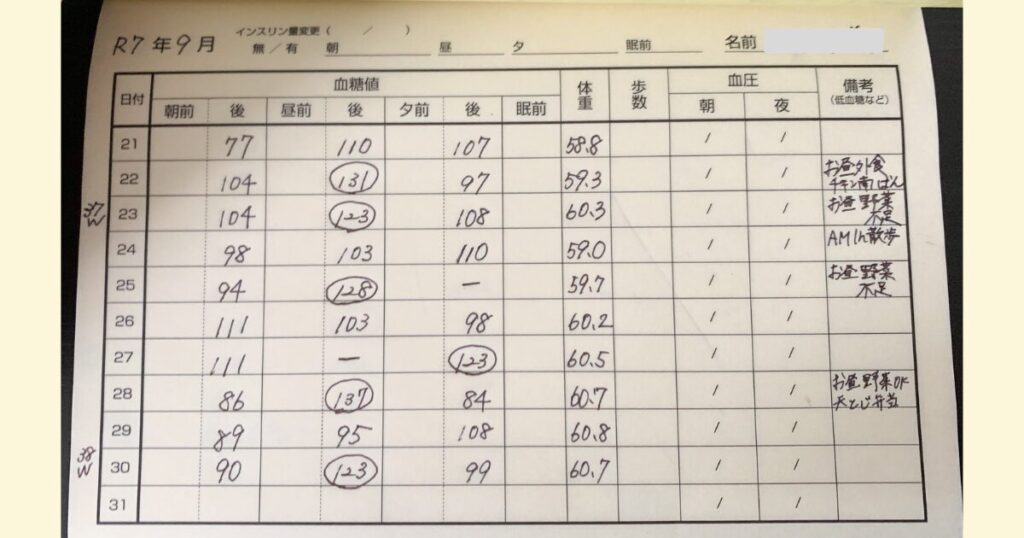 R7年9月 インスリン量変更（ / ） 無／有 朝 昼 夕 眠前 名前
日付 血糖値 体重 歩数 血圧 備考（低血糖など）
朝前 後 昼前 後 夕前 後 眠前 朝 夜
21 77 110 107 58.8 / /
22 104 131 97 59.3 / / お昼外食 チキン南ばん
37W
23 104 123 108 60.3 / / お昼野菜不足
24 98 103 110 59.0 / / AM1h散歩
25 94 128 ー 59.7 / / お昼野菜不足
26 111 103 98 60.2 / /
27 111 ー 123 60.5 / /
28 86 137 84 60.7 / / お昼野菜OK 天とじ弁当
29 89 95 108 60.8 / /
38W
30 90 123 99 60.7 / /
31 / /